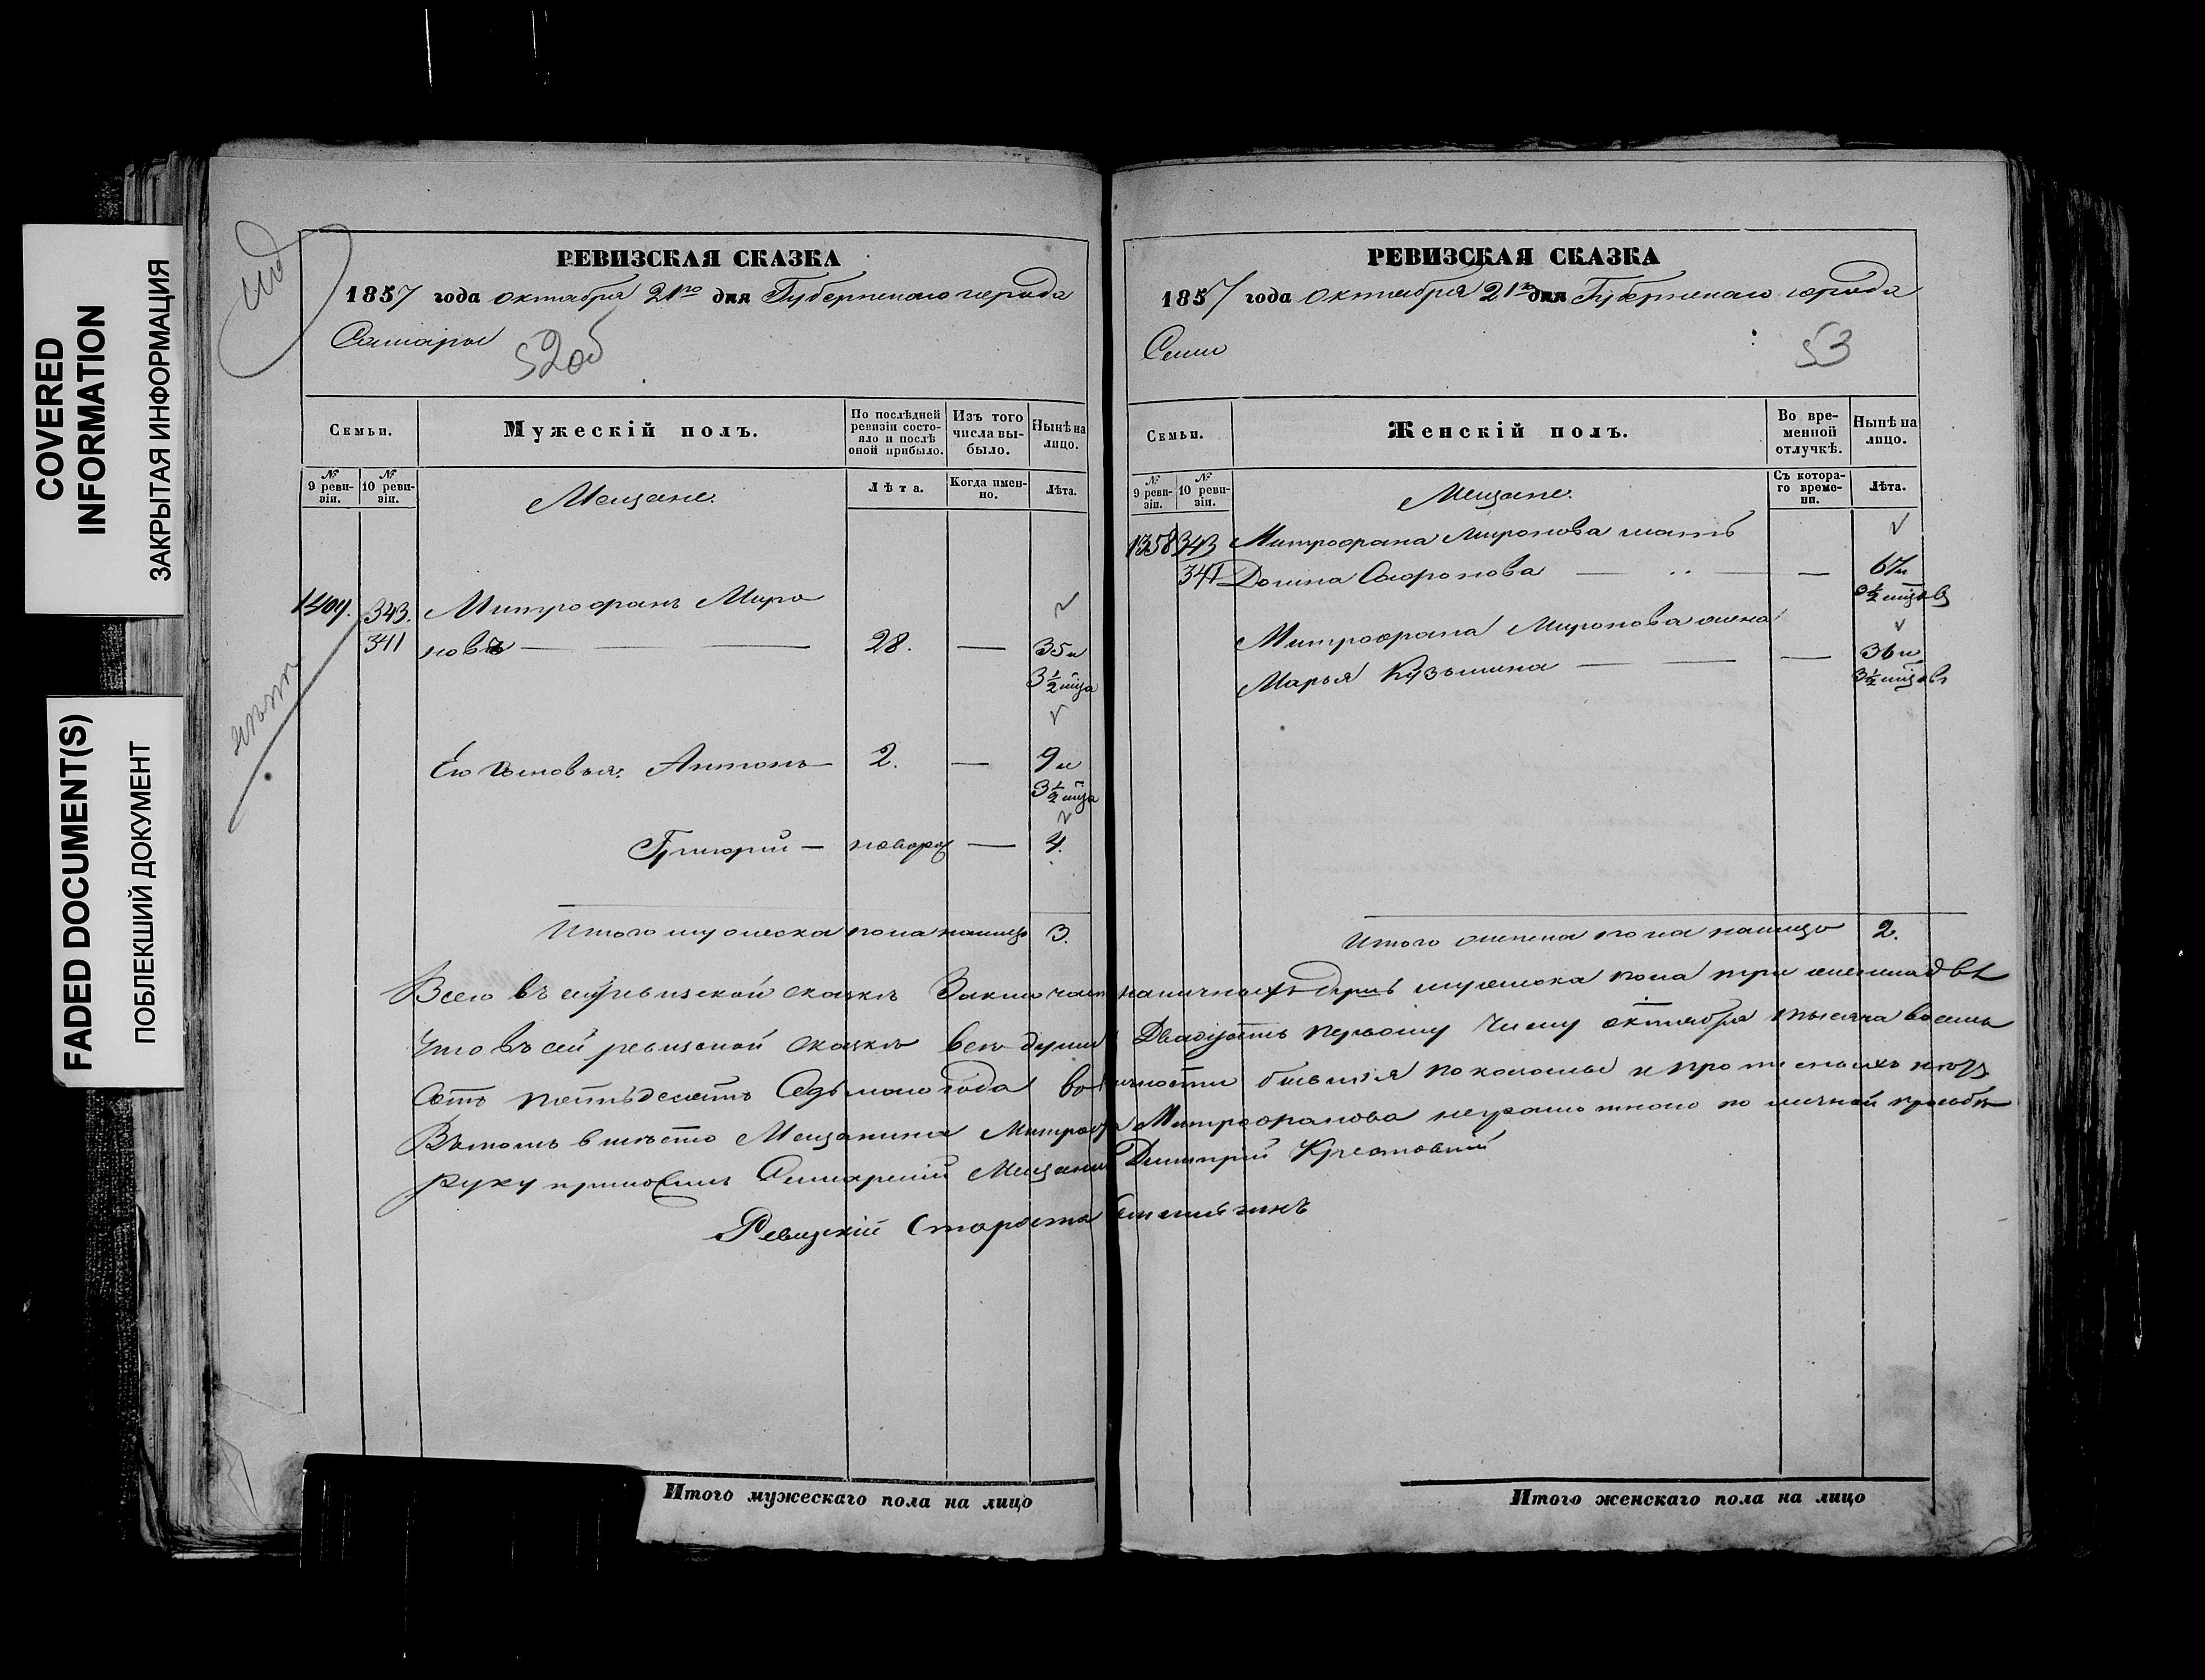 COVERED INFORMATION
ЗАКРЫТАЯ ИНФОРМАЦИЯ
FADED DOCUMENT(S)
ПОБЛЕКШИЙ ДОКУМЕНТ
РЕВИЗСКАЯ СКАЗКА
1857 года октября 21го дня Губернскаго города
Самары
52об
Семьи.
Мужескій полъ.
По послѣдней ревизіи состояло и послѣ оной прибыло.
Изъ того числа выбыло.
Нынѣ на лицо.
№ 9 ревизіи.
№ 10 ревизіи.
Мещане.
Лѣта.
Когда именно.
Лѣта.
343. Митрофанъ Миро
341 новъ — — 28. — 35 и
3½ мца
Его сыновья: Антонъ — 2. — 9 и
3½ мца
Григорий — новорож — 4.
Итого мужеска пола налицо 3.
РЕВИЗСКАЯ СКАЗКА
1857 года Октября 21го дня Губернскаго города
53
Семьи.
Женскій полъ.
Во временной отлучкѣ.
Нынѣ на лицо.
№ 9 ревизіи.
№ 10 ревизіи.
Мещане.
Съ котораго времени.
Лѣта.
1358 343 Митрофана Миронова мать
341 Домна Сафронова — — — 67 и
3½ мцов
Митрофана Миронова жена
Марья Кузьмина — — — 36 и
3½ мцов
Итого женска пола налицо 2.
Всего въ сей ревизской сказкѣ Заключает наличныхъ душъ мужеска пола три женска двѣ
Что въ сей ревизской сказкѣ все души Двадцать первому Числу октября тысяча восемь
Сотъ пятьдесятъ Седьмого года
Въ томъ вместо Мещанина Митрофа Митрофанова неграмотного по личной просьбѣ
руку приложилъ Самарский Мещанин Димитрий Крестовский
Ревизскій Староста
Итого мужескаго пола на лицо
Итого женскаго пола на лицо